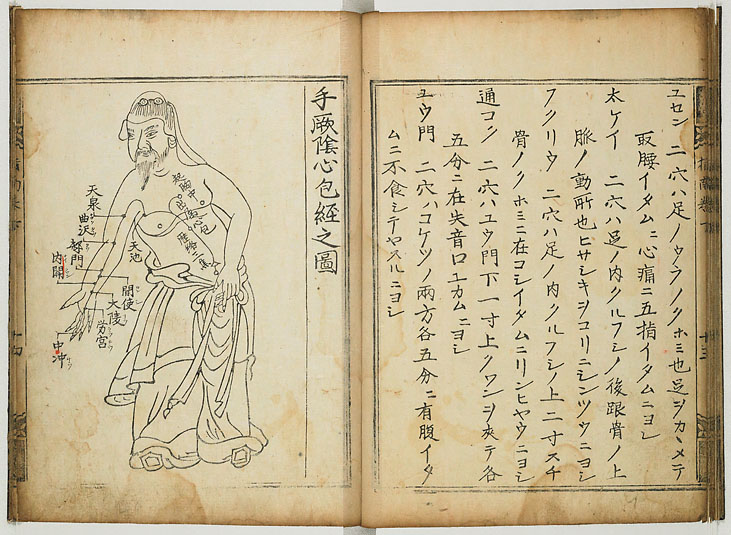 ユセン 二穴ハ足ノウラノクホミ也足ヲカヽメテ
取腰イタムニ心痛ニ五指イタムニヨシ
太ケイ 二穴ハ足ノ内クルフシノ後跟骨ノ上
脉ノ動所也ヒサシキヲコリニシンツウニヨシ
フクリウ 二穴ハ足ノ内クルフシノ上二寸スチ
骨ノクホミニ在コシイタムニリンヒヤウニヨシ
通コク 二穴ハユウ門下一寸上クワンヲ夾テ各
五分ニ在失音口ユカムニヨシ
ユウ門 二穴ハコケツノ兩方各五分ニ有腹イタ
ムニ不食シテヤスルニヨシ
手厥陰心包經之圖
起胸中
出屬心包
歴絡三焦
天池
天泉
曲沢
郄門
内關
間使
大陵
労宮
中冲